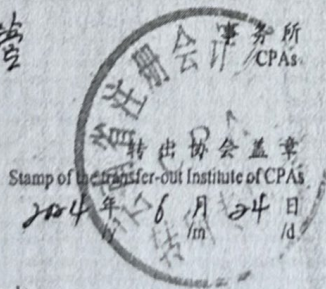 事务所
CPAs
转出协会盖章
Stamp of the transfer-out Institute of CPAs
2024年 6月 24日
/y /m /d
省注册会计